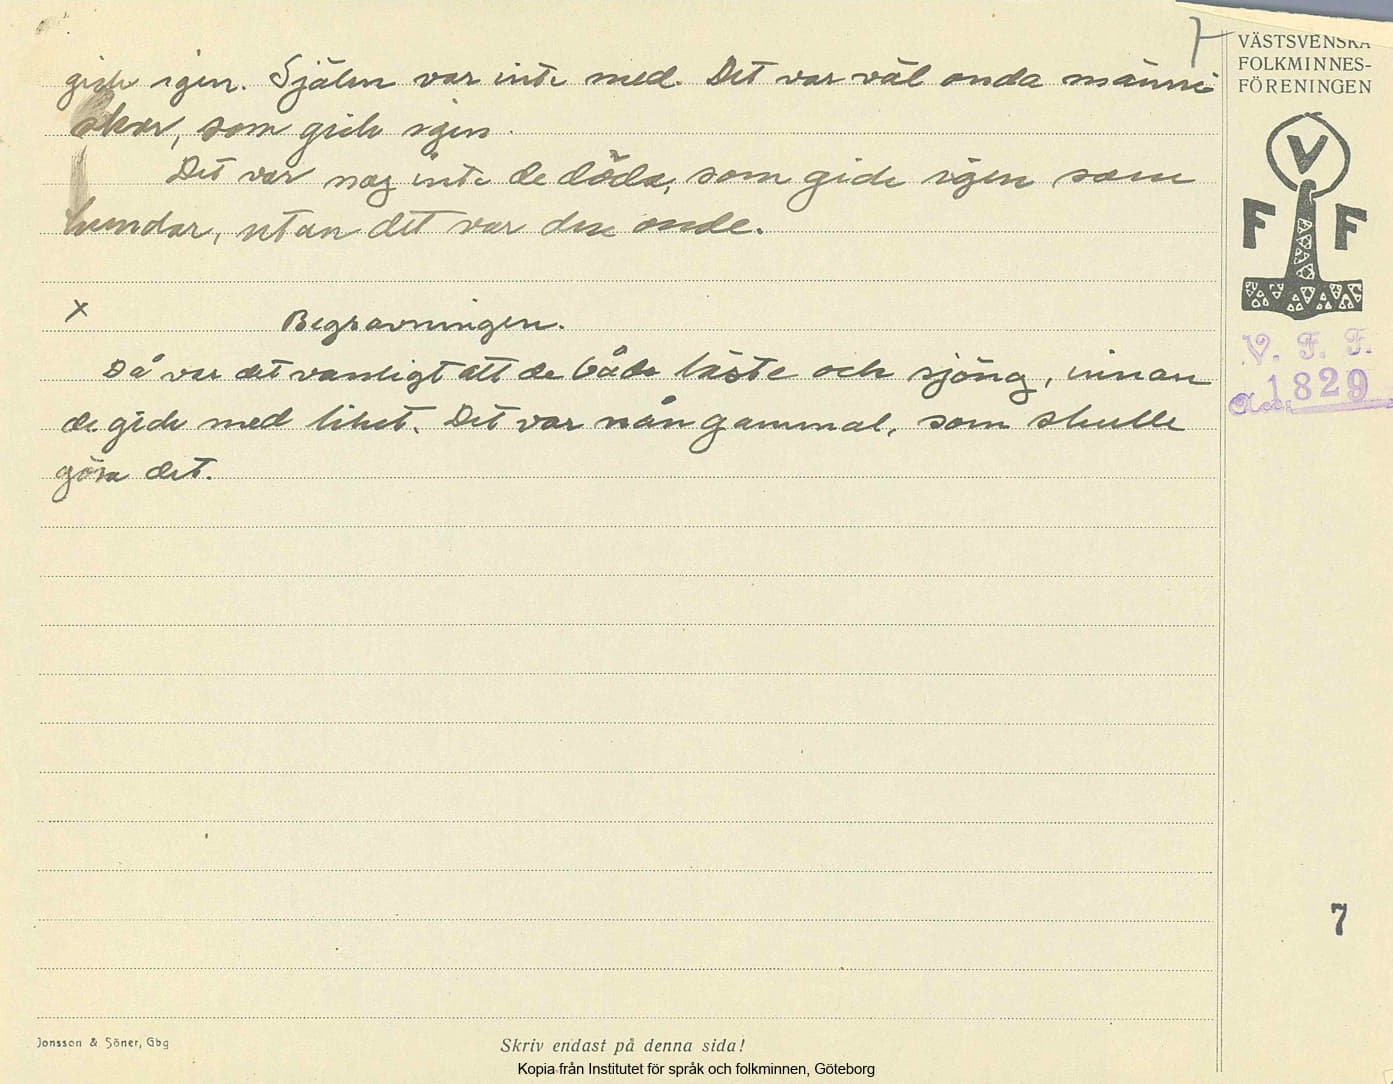 7
VÄSTSVENSKA
FOLKMINNES-
FÖRENINGEN
gick igen. Själen var inte med. Det var väl onda männi-
skor, som gick igen.
Det var nog inte de döda, som gick igen som
hundar, utan det var den onde.
V
F F
x Begravningen.
V. F. F.
Då var det vanligt att de både läste och sjöng, innan
Acc. 1829
de gick med liket. Det var nån gammal, som skulle
göra det.
7
Jonsson & Söner, Gbg
Skriv endast på denna sida!
Kopia från Institutet för språk och folkminnen, Göteborg